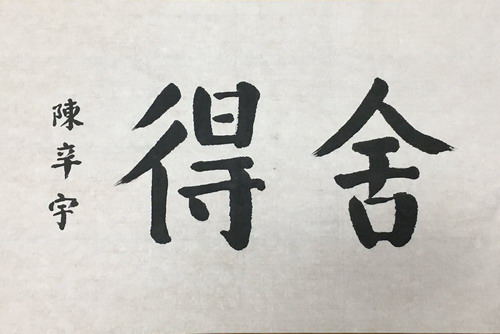 舍得
陳辛宇